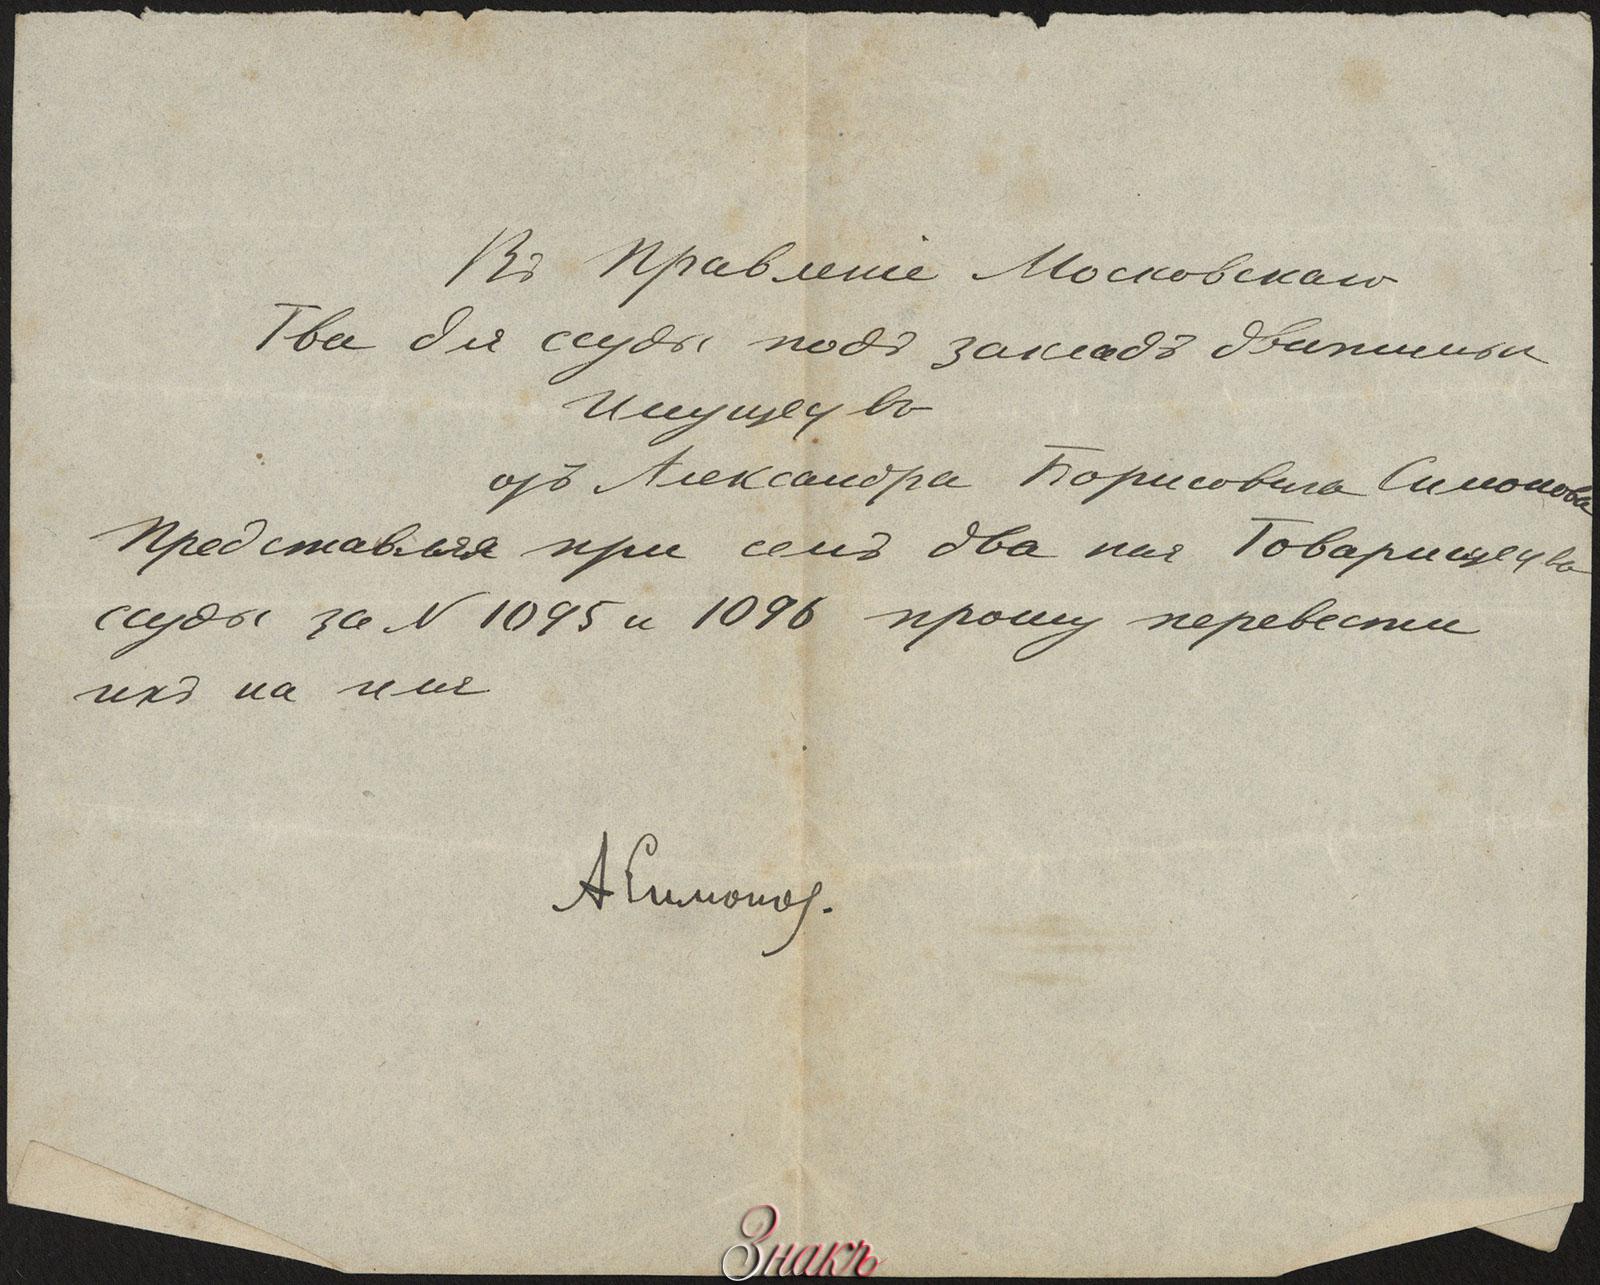 Въ Правленіе Московскаго
Тва для ссуды подъ закладъ движимы
Имуществ
отъ Александра Борисовича Симонова
Представляя при семъ два пая Товарищества
ссуды за N 1095 и 1096 прошу перевести
ихъ на имя
А Симонов.
Знакъ